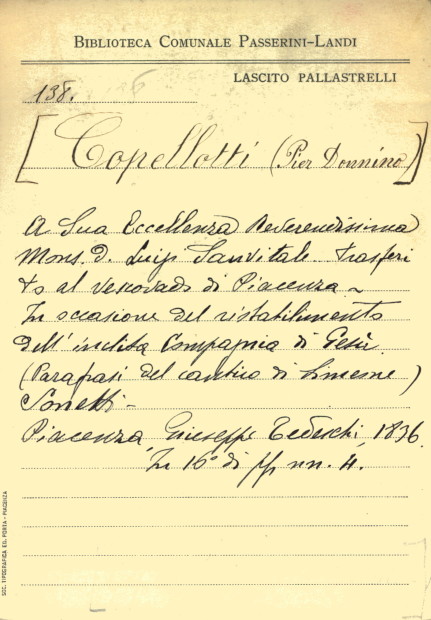 BIBLIOTECA COMUNALE PASSERINI-LANDI
LASCITO PALLASTRELLI
138.
[Copellotti (Pier Donnino)]
A Sua Eccellenza Reverendissima
Mons. D. Luigi Sanvitale trasferi
to al vescovado di Piacenza ~
In occasione del ristabilimento
dell'inclita Compagnia di Gesù.
(Parafrasi del cantico di Simeone)
Sonetti -
Piacenza, Giuseppe Tedeschi, 1836.
In 16° di pp. nn. 4.
SOC. TIPOGRAFICA ED. PORTA - PIACENZA